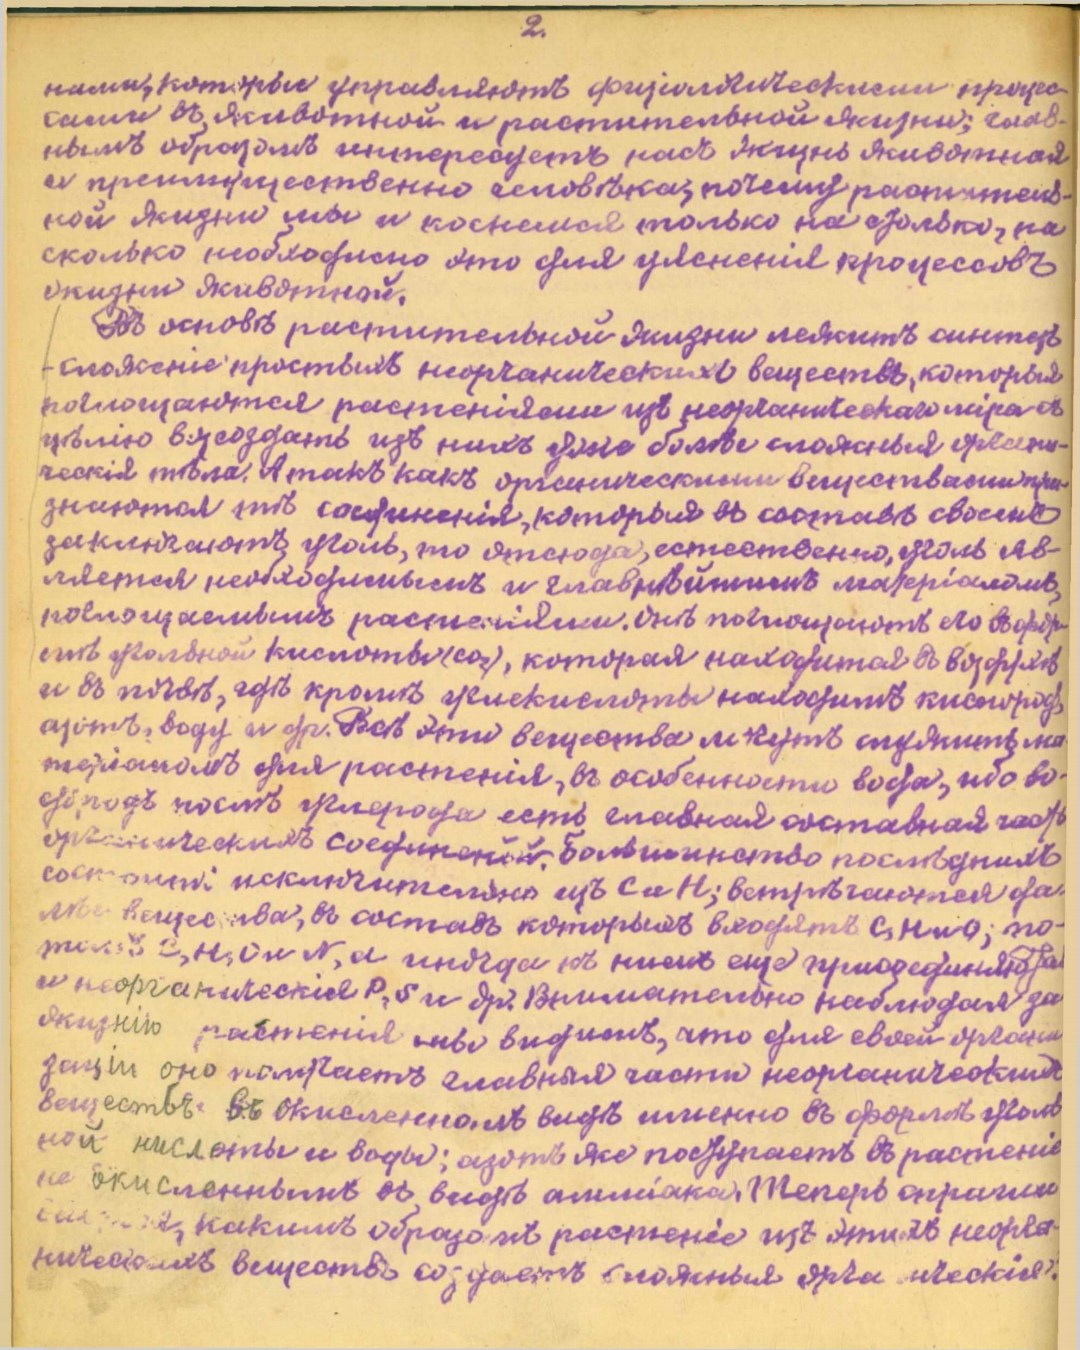 2.
ними, которые управляютъ физіологическими процес-
сами въ животной и растительной жизни; глав-
нымъ образомъ интересуетъ насъ жизнь животная
и преимущественно человѣка, почему раститель-
ной жизни мы и коснемся только на столько, на
сколько необходимо это для уясненія процессовъ
жизни животной.
Въ основѣ растительной жизни лежитъ синтезъ
- сложеніе простыхъ неорганическихъ веществъ, которыя
поглощаются растеніями изъ неорганическаго міра съ
цѣлію возсоздать изъ нихъ уже болѣе сложныя органи-
ческія тѣла. А такъ какъ органическими веществами при-
знаются тѣ соединенія, которыя въ составѣ своемъ
заключаютъ уголь, то отсюда, естественно, уголь яв-
ляется необходимымъ и главнѣйшимъ матеріаломъ,
поглощаемымъ растеніями. Онѣ поглощаютъ его въ фор-
мѣ угольной кислоты (CO₂), которая находится въ воздухѣ
и въ почвѣ, гдѣ кромѣ углекислоты находимъ кислородъ,
азотъ, воду и др. Всѣ эти вещества могутъ служить ма-
теріаломъ для растенія, въ особенности вода, ибо во-
дородъ послѣ углерода есть главная составная часть
органическихъ соединеній. Большинство послѣднихъ
состоитъ исключительно изъ C и H; встрѣчаются да-
лѣе вещества, въ составъ которыхъ входятъ C, H и O; по-
томъ C, H, O и N, а иногда къ нимъ еще присоединяются
и неорганическія P, S и др. Внимательно наблюдая за
жизнію растенія мы видимъ, что для своей органи
заціи оно получаетъ главныя части неорганическихъ
веществъ въ окисленномъ видѣ именно въ формѣ уголь
ной кислоты и воды; азотъ же поступаетъ въ растеніе
не окисленнымъ въ видѣ амміака. Теперь спраши
вается, какимъ образомъ растеніе изъ этихъ неорга-
ническихъ веществъ создаетъ сложныя органическія?